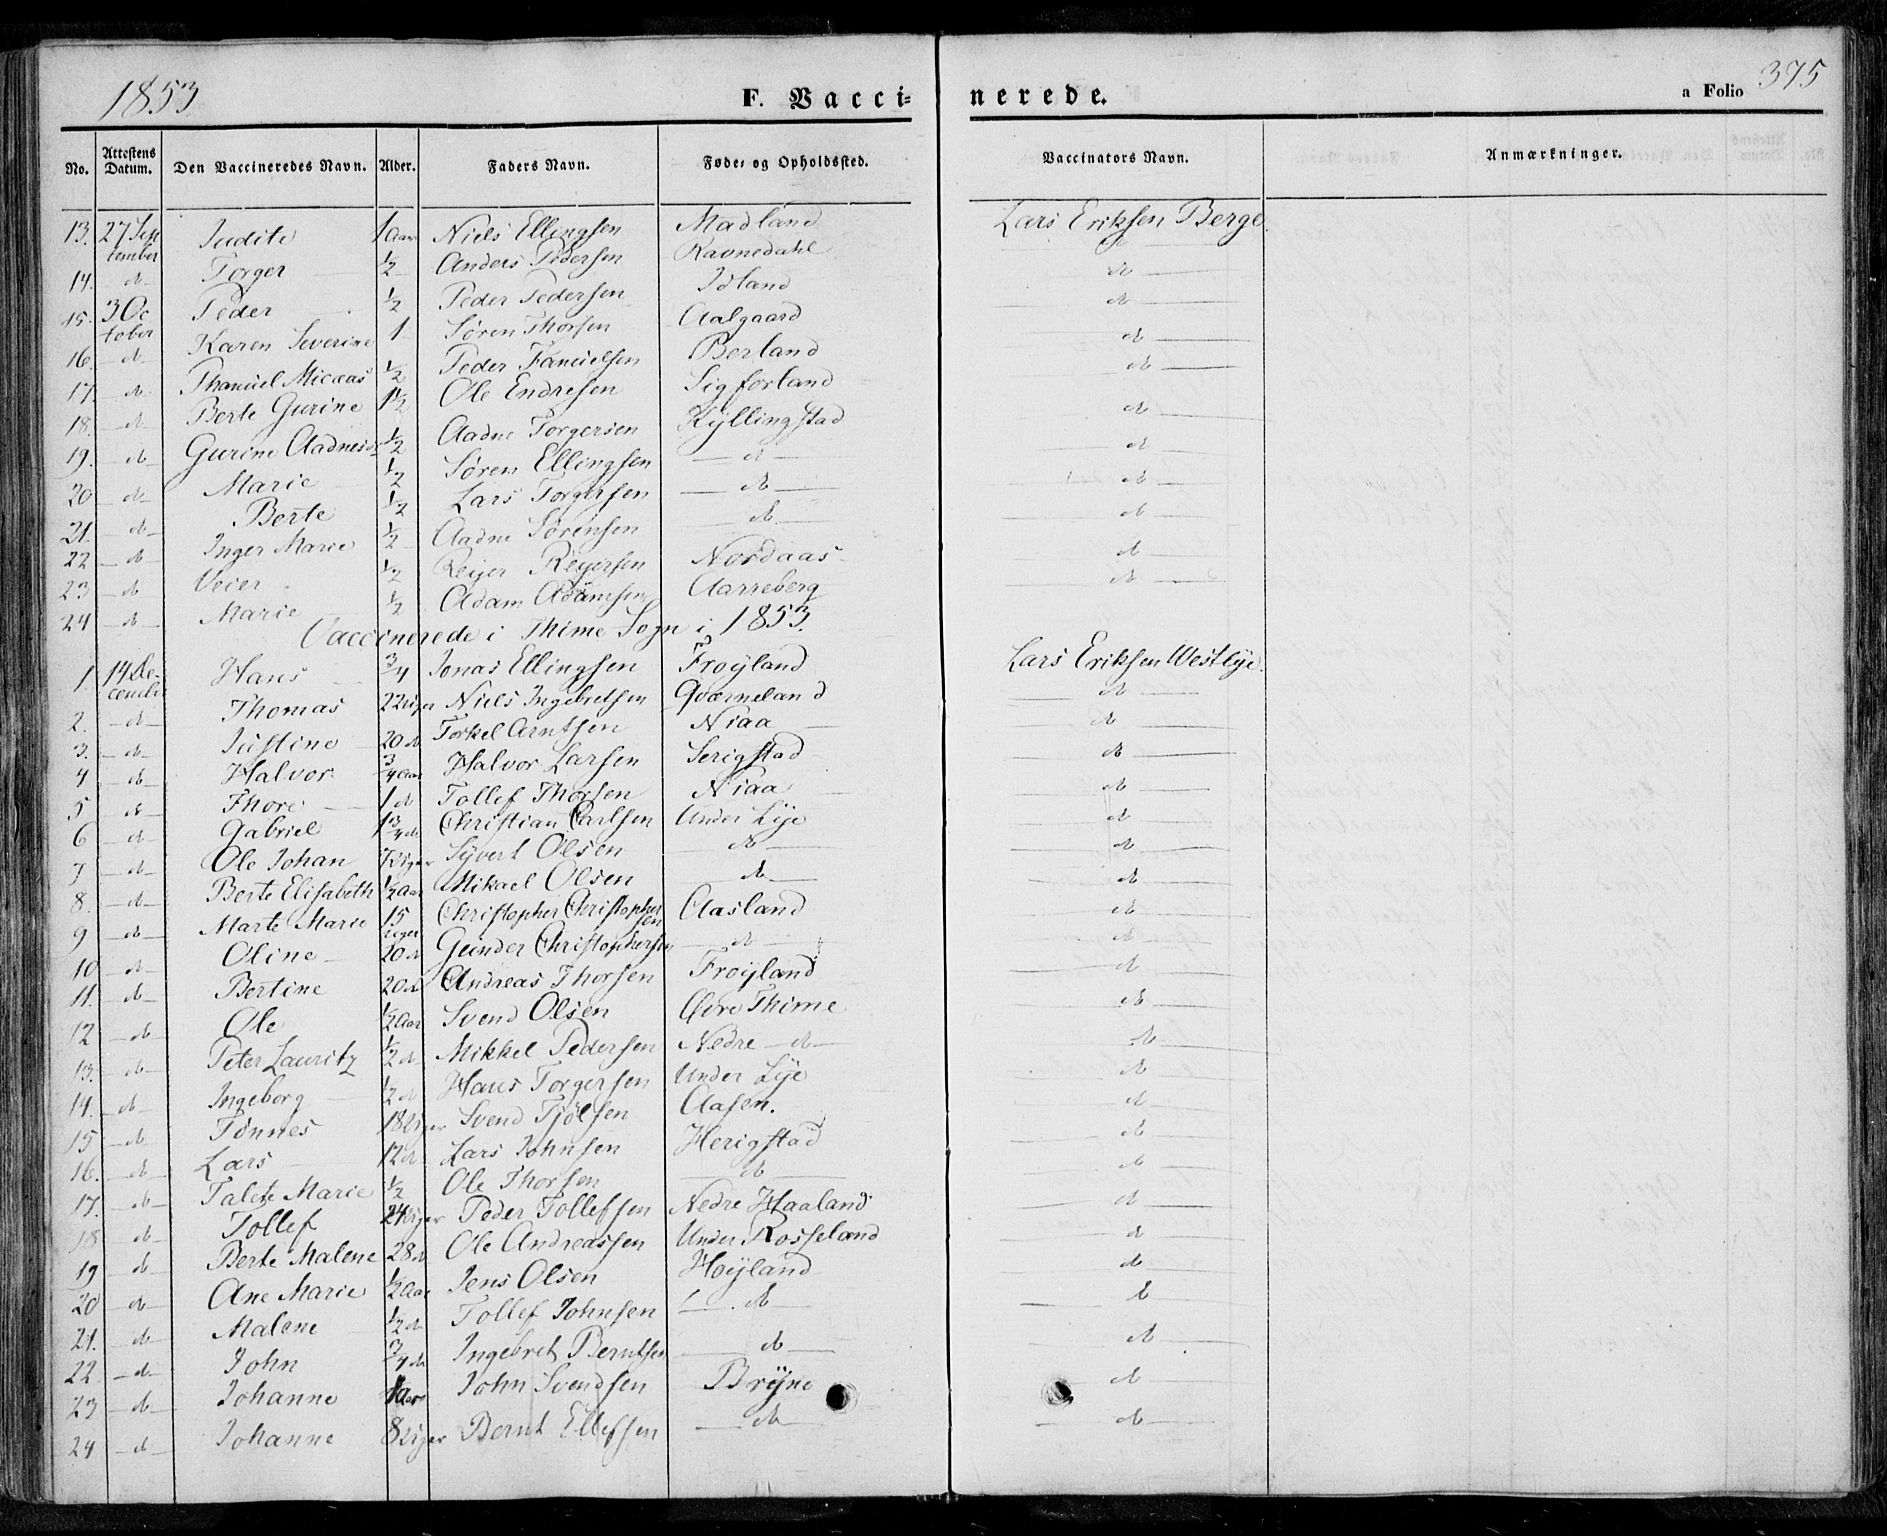 1853 F. Vacci- nerede. a Folio 375
No. Attestens Datum. Den Vaccineredes Navn. Alder. Faders Navn. Føde- og Opholdssted. Vaccinators Navn. Anmærkninger.
13. 27 Sep tember Judite 1 Aar Niels Ellingsen Madland Lars Eriksen Berge.
14. d Torger 1/2 Anders Pedersen Ravnedahl d
15. 3 Oc tober Peder 1/2 Peder Pedersen Idland d
16 d Karen Severine 1 Søren Thorsen Aalgaard d
17. d Thamuel Micæas 1/2 Peder Famuelsen Berland d
18. d Berte Gurine 1 1/2 Ole Endresen Sigforland d
19. d Gurine Aadnesdr 1/2 Aadne Torgersen Kyllingstad d
20 d Marie 1/2 Søren Ellingsen d d
21. d Berte 1/2 Lars Torgersen d d
22 d Inger Marie 1/2 Aadne Sørensen d d
23 d Veier 1/2 Reijer Reijersen Nordaas d
24 d Marie 1/2 Adam Adamsen Aarreberg
Vaccinerede i Thime Sogn i 1853.
1. 14 De- cemb. Hans 3/4 Jonas Ellingsen Frøyland Lars Eriksen Westlye.
2. d Thomas 22 Uger Niels Ingebretsen Qværneland d
3. d Justine 20 d Torkel Arntsen Niaa d
4 d Halvor 3/4 Aar Halvor Larsen Serigstad d
5 d Thore 1 d Tollef Thorsen Niaa d
6 d Gabriel 1 3/4 d Christian Carlsen Under Lye d
7 d Ole Johan 7 Uger Syvert Olsen d d
8. d Berte Elisabeth 1/2 Aar Mikael Olsen d d
9 d Marte Marie 15 Uger Christopher Christophersen Aasland d
10 d Oline 20 d Gunder Christophersen d d
11. d Bertine 20 d Andreas Thorsen Frøyland d
12 d Ole 1/2 Aar Svend Olsen Øvre Thime d
13. d Peter Lauritz 1/2 d Mikkel Pedersen Nedre d d
14. d Ingeborg 1/2 d Hans Torgersen Under Lye d
15 d Tønnes 18 Uger Svend Tjølsen Aasen. d
16. d Lars 12 d Lars Johnsen Herigstad d
17. d Talete Marie 1/2 Ole Thorsen d d
18 d Tollef 24 Uger Peder Tollefsen Nedre Haaland d
19 d Berte Malene 28 d Ole Andreassen Under Rosseland d
20 d Ane Marie 1/2 Aar Jens Olsen Høyland d
21. d Malene 1/2 d Tollef Johnsen d d
22 d John 3/4 d Ingebret Berntsen d d
23 d Johanne 1 Aar John Svendsen Bryne d
24 d Johanne 8 Uger Bernt Ellefsen d d